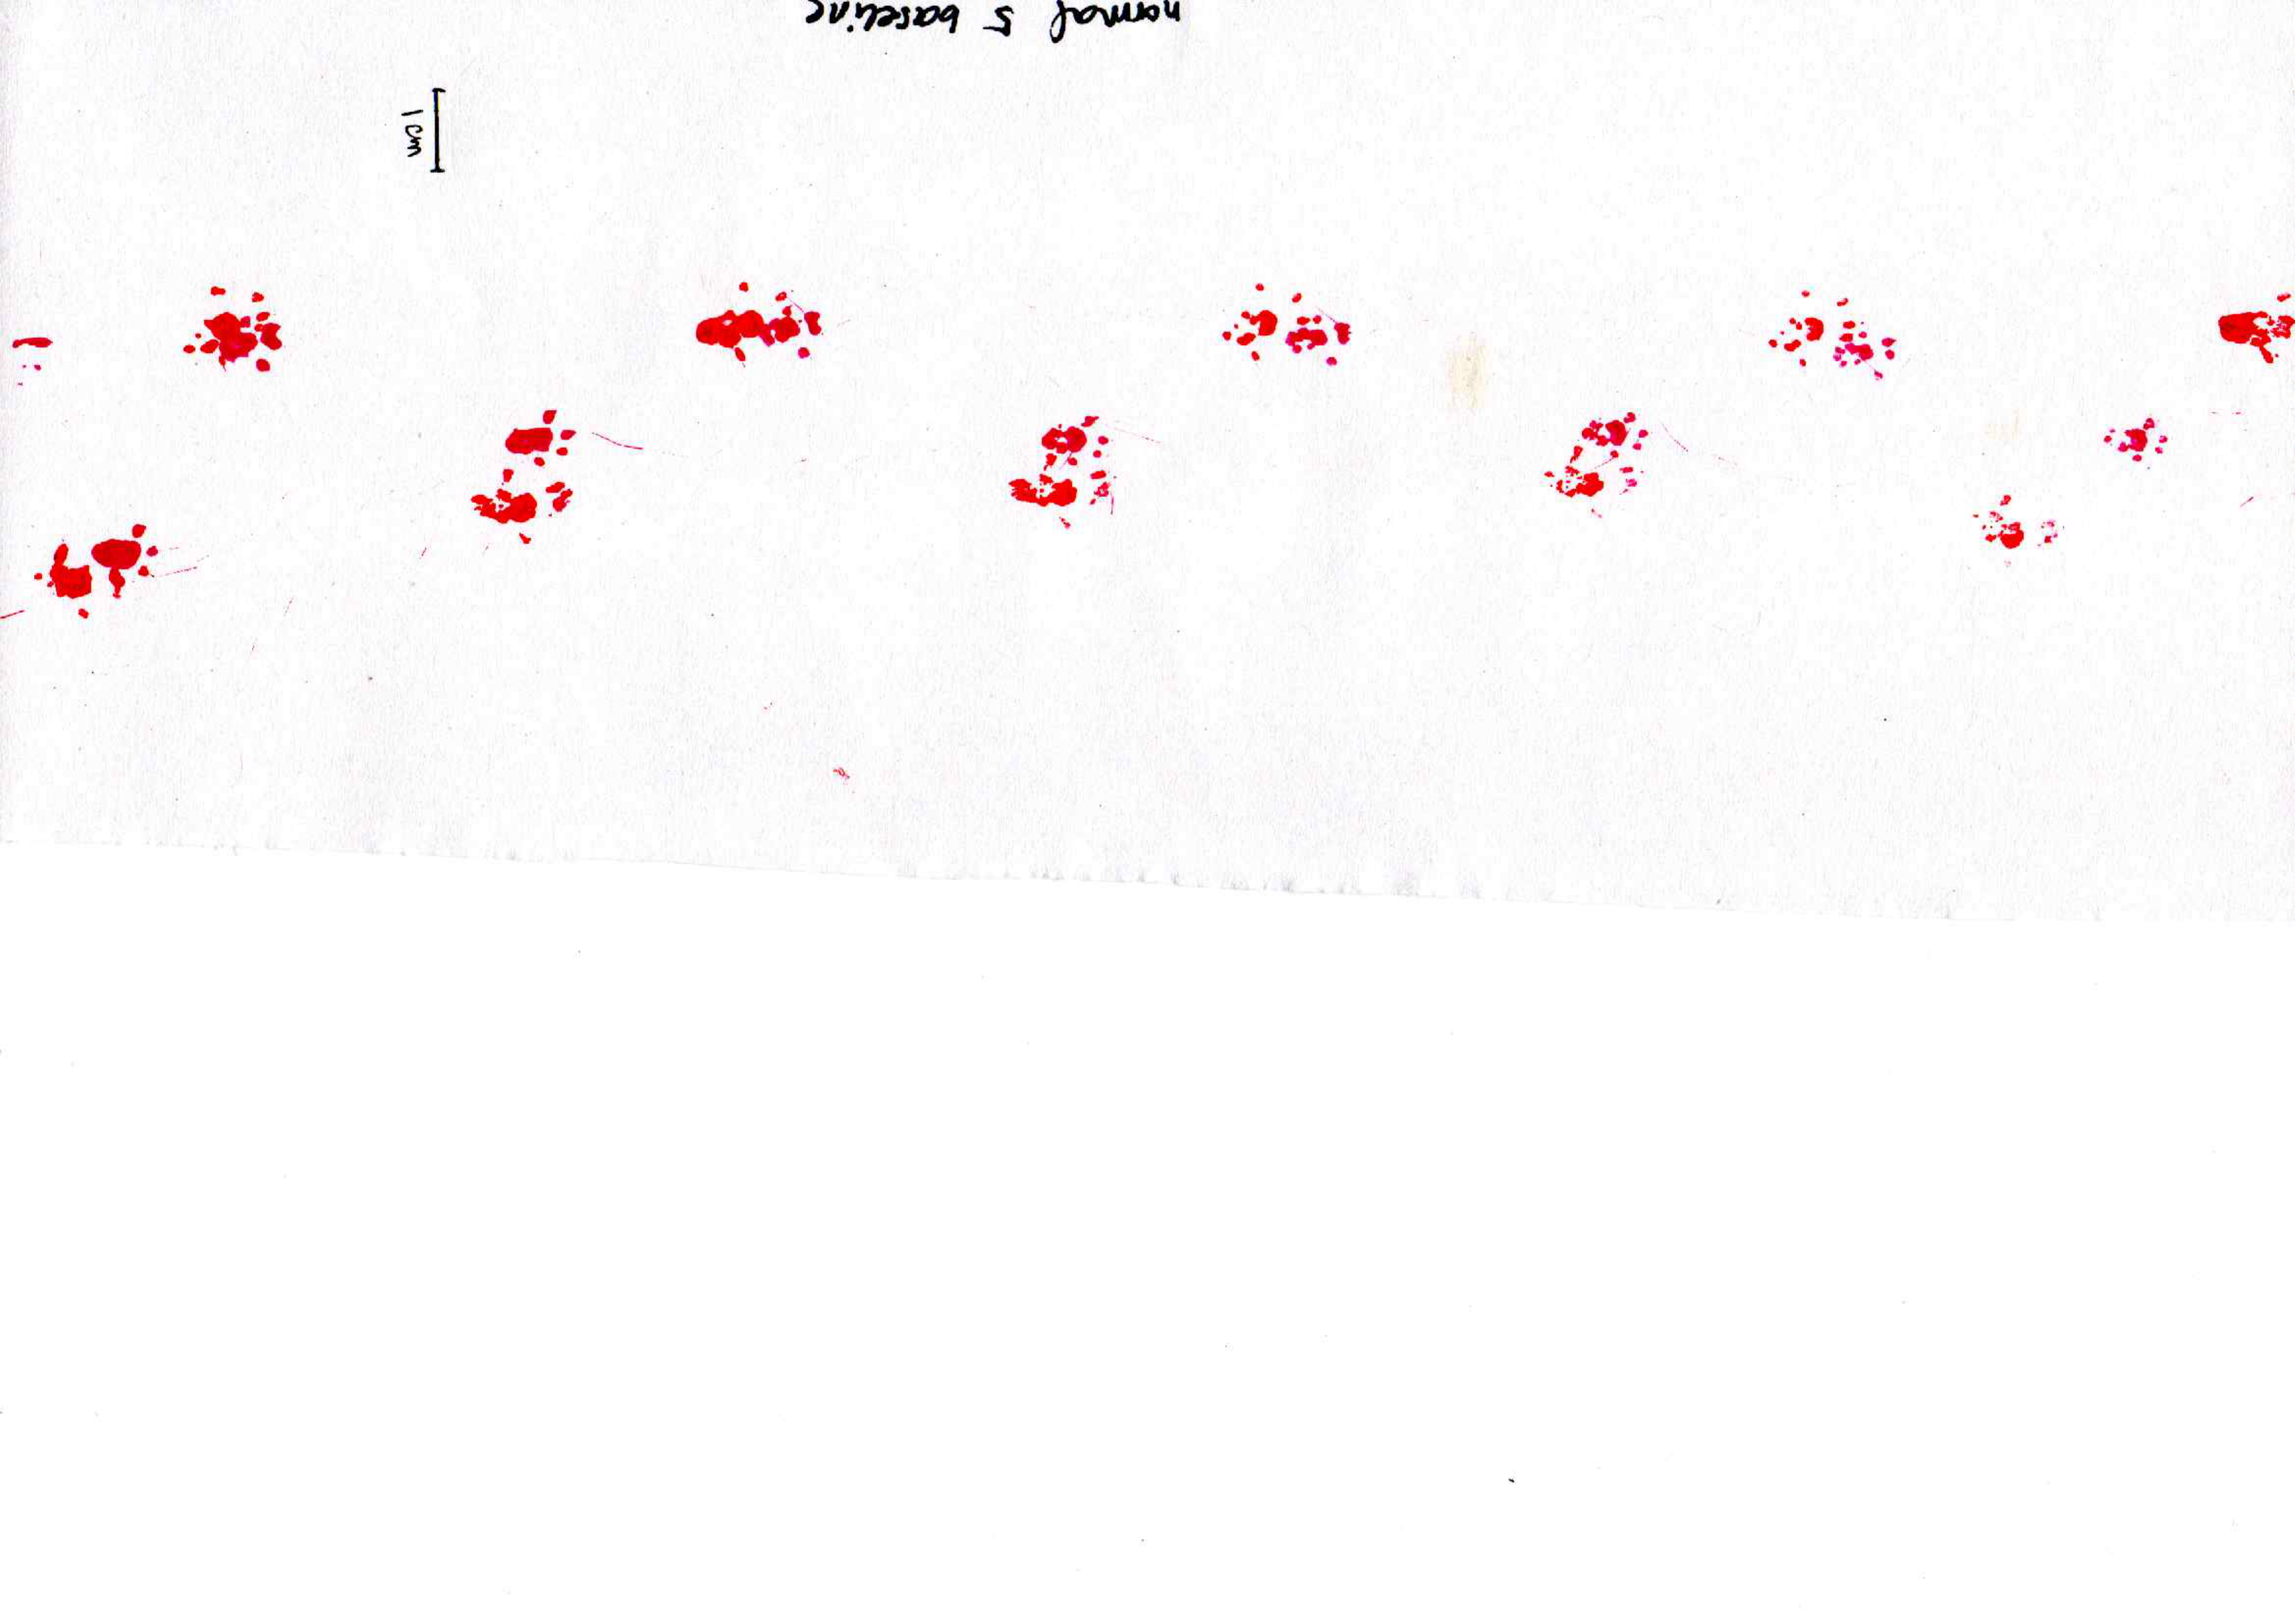 normal 5 baseline
1 cm